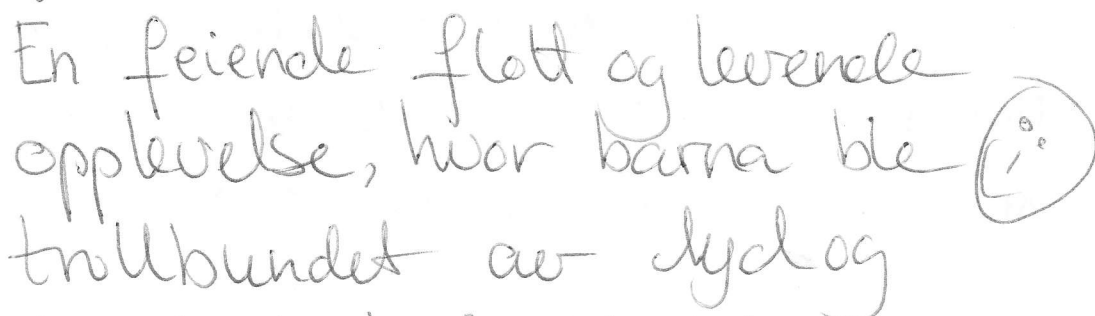 En feiende flott og levende
opplevelse, hvor barna ble
trollbundet av lyd og